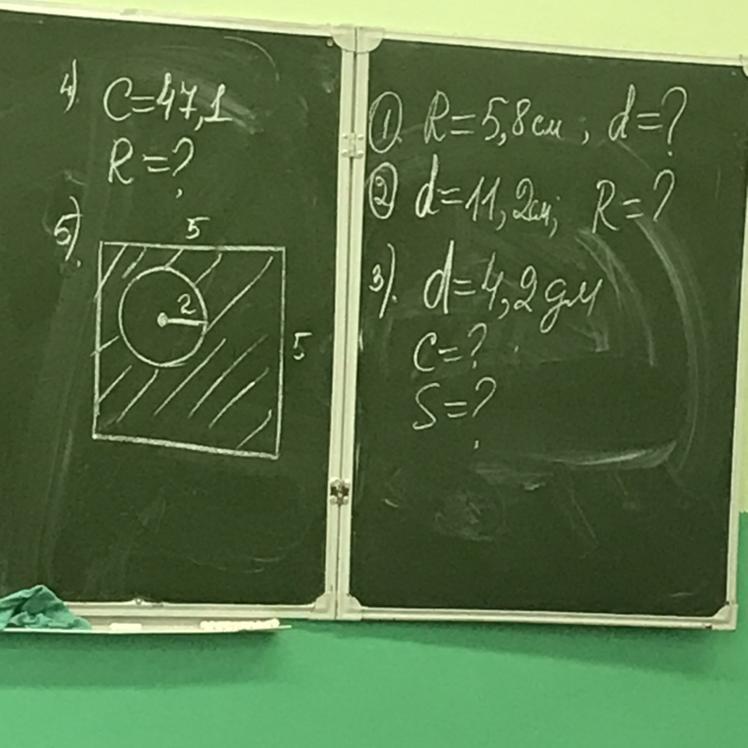 4) C=47,1
R=?
5).
5
2
5
① R=5,8см; d=?
② d=11,2см; R=?
3). d=4,2дм
C=?
S=?